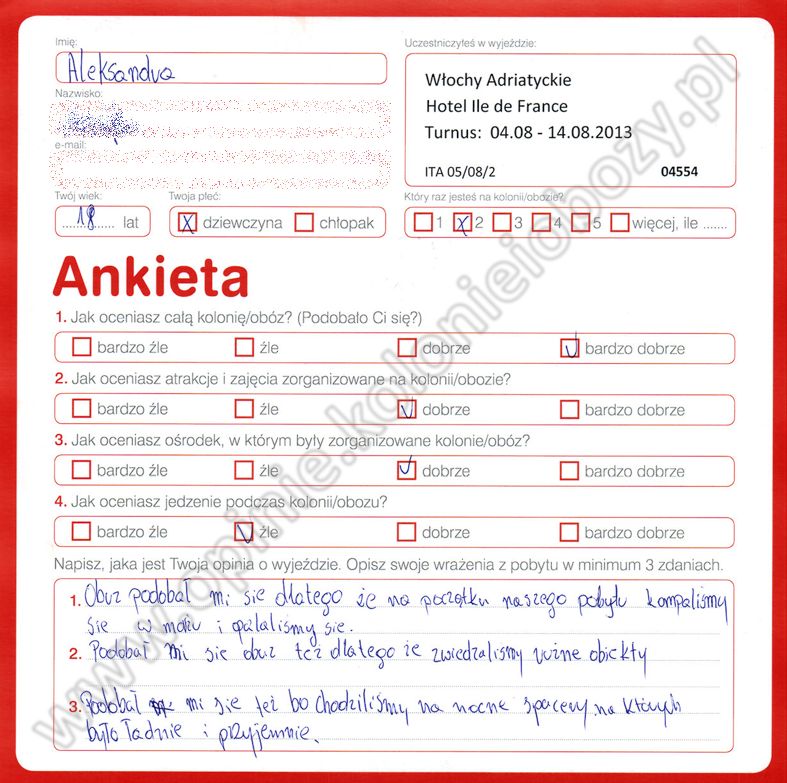 Imię:
Uczestniczyłeś w wyjeździe:
Aleksandra
Włochy Adriatyckie
Hotel Ile de France
Turnus: 04.08 - 14.08.2013
ITA 05/08/2 04554
Nazwisko:
e-mail:
Twój wiek:
Twoja płeć:
Który raz jesteś na kolonii/obozie?
18 lat
X dziewczyna
chłopak
1 X 2 3 4 5 więcej, ile .......
Ankieta
1. Jak oceniasz całą kolonię/obóz? (Podobało Ci się?)
bardzo źle źle dobrze V bardzo dobrze
2. Jak oceniasz atrakcje i zajęcia zorganizowane na kolonii/obozie?
bardzo źle źle V dobrze bardzo dobrze
3. Jak oceniasz ośrodek, w którym były zorganizowane kolonie/obóz?
bardzo źle źle V dobrze bardzo dobrze
4. Jak oceniasz jedzenie podczas kolonii/obozu?
bardzo źle V źle dobrze bardzo dobrze
Napisz, jaka jest Twoja opinia o wyjeździe. Opisz swoje wrażenia z pobytu w minimum 3 zdaniach.
1. Obuz podobał mi sie dlatego że na początku naszego pobytu kompaliśmy
sie w możu i opalaliśmy sie.
2. Podobał mi sie obuz też dlatego że zwiedzaliśmy różne obiekty
3. Podobał mi sie też bo chodziliśmy na nocne spacery na których
było ładnie i przyjemnie.
www.opinie.kolonieiobozy.pl